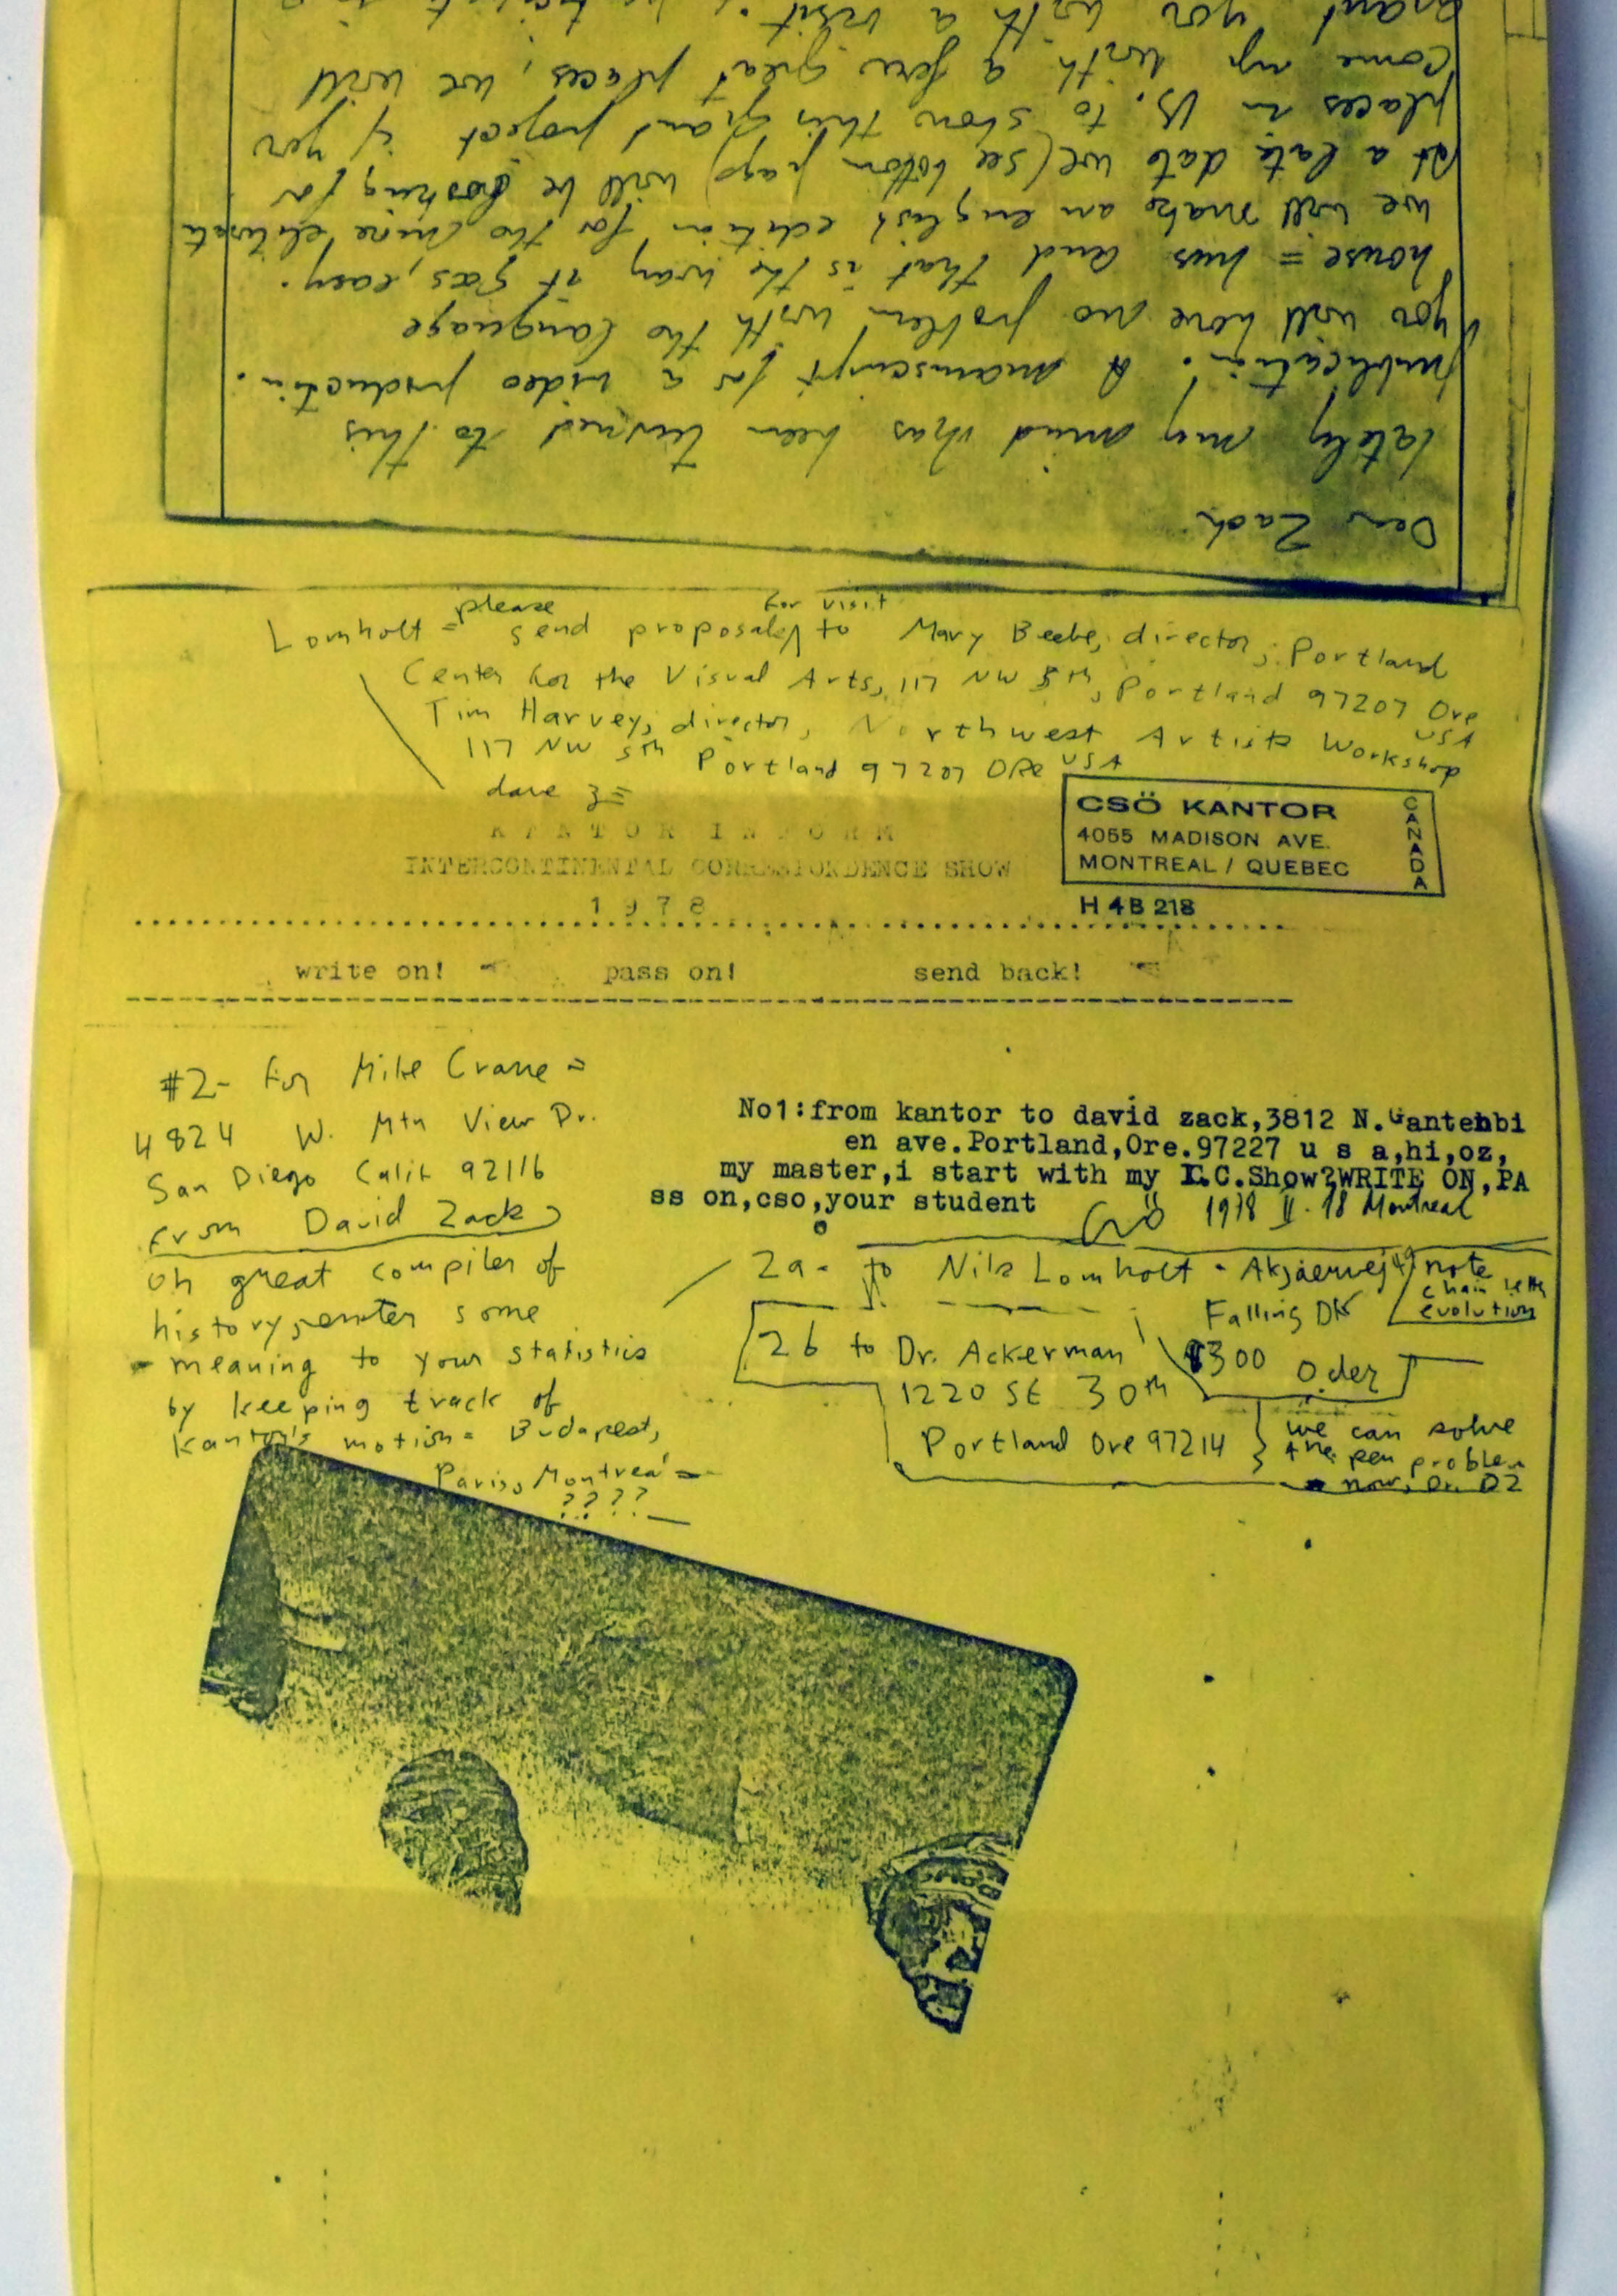 Dear Zach
lately my mind has been turned to this
publication. A manuscript for a video production.
you will have no problem with the language
house = hus and that is the way it goes, easy.
we will make an english edition for the
at a late date we (see bottom page) will be looking for
places in US. to show this giant project if you
come up with a few great places, we will
grant you with a visit.
Lomholt = please send proposals for visit to Mary Beebe, director, Portland
Center for the Visual Arts, 117 NW 5th, Portland 97207 Ore
USA
Tim Harvey, director, Northwest Artists Workshop
117 NW 5th Portland 97207 ORe USA
dave z
KANTOR INFORM
INTERCONTINENTAL CORRESPONDENCE SHOW
1978
CSÖ KANTOR
4055 MADISON AVE.
MONTREAL / QUEBEC
CANADA
H4B 218
write on! pass on! send back!
#2- for Mike Crane =
4824 W. Mtn View Dr.
San Diego Calif 92116
from David Zack
oh great compiler of
history, some
meaning to your statistics
by keeping track of
Kantor's motion = Budapest,
Paris, Montreal =
????
No1:from kantor to david zack,3812 N.Gantenbi
en ave.Portland,Ore.97227 u s a,hi,oz,
my master,i start with my I.C.Show?WRITE ON,PA
ss on,cso,your student
1978 II. 18 Montreal
2a- to Nils Lomholt - Akjaervej 49
Falling DK
8300 Oder
note
chain letter
evolution
2b to Dr. Ackerman
1220 SE 30th
Portland Ore 97214
we can solve
the pen problem
now, Dr. DZ